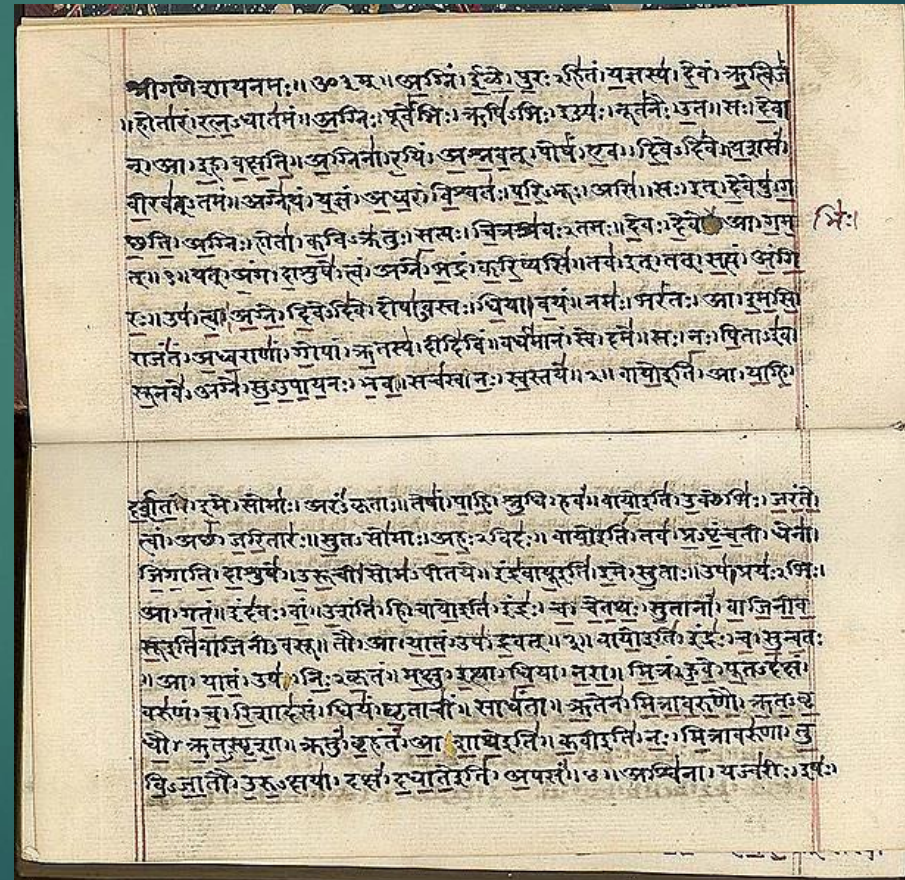 श्रीगणेशायनमः॥ॐ३म्॥अग्निं।ईळे।पुरःऽहितं।यज्ञस्य।देवं।ऋत्विजं
॥होतारं।रत्नऽधातमं॥अग्निः।पूर्वेभिः।ऋषिऽभिः।ईड्यः।नूतनैः।उत॥सः।देवा
न्।आ।इह।वक्षति॥अग्निना।रयिं।अश्नवत्।पोषं।एव।दिवेऽदिवे॥यशसं।
वीरवत्ऽतमं॥अग्ने।यं।यज्ञं।अध्वरं।विश्वतः।परिऽभूः।असि॥सः।इत्।देवेषु।ग
छति।अग्निः।होता।कविऽक्रतुः।सत्यः।चित्रश्रवःऽतमः॥देवः।देवे आ।गम
त्॥१॥यत्।अंग।दाशुषे।त्वं।अग्ने।भद्रं।करिष्यसि॥तव।इत्।तत्।सत्यं।अंगि
रः॥उप।त्वा।अग्ने।दिवेऽदिवे।दोषाऽवस्तः।धिया।वयं॥नमः।भरंतः।आ।इमसि॥
राजंतं।अध्वराणां।गोपां।ऋतस्य।दीदिविं॥वर्धमानं।स्वे।दमे॥सः।नः।पिताऽइव।
सूनवे।अग्ने।सुऽउपायनः।भव॥सचस्व।नः।स्वस्तये॥२॥वायोइति।आ।याहि।
भिः।
दर्शत।इमे।सोमाः।अरंऽकृताः॥तेषां।पाहि।श्रुधि।हवं॥वायोइति।उक्थेभिः।जरंते।
त्वां।अछ।जरितारः॥सुतऽसोमाः।अहःऽविदः॥वायोइति।तव।प्रऽपृंचती।धेना।
जिगाति।दाशुषे॥उरूची।सोमऽपीतये॥इंद्रवायूइति।इमे।सुताः।उप।प्रयःऽभिः।
आ।गतं॥इंदवः।वां।उशंति।हि॥वायोइति।इंद्रः।च।चेतथः।सुतानां।वाजिनीव
सूइतिवाजिनीऽवसू॥तौ।आ।यातं।उप।द्रवत्॥३॥वायोइति।इंद्रः।च।सुन्वतः
॥आ।यातं।उप।निःऽकृतं॥मक्षु।इत्था।धिया।नरा॥मित्रं।हुवे।पूतऽदक्षं।
वरुणं।च।रिशादसं॥धियं।घृताचीं।साधंता॥ऋतेन।मित्रावरुणौ।ऋतऽवृ
धौ।ऋतऽस्पृशा॥क्रतुं।बृहंतं।आशाथेइति॥कवीइति।नः।मित्रावरुणा।तु
विऽजातौ।उरुऽक्षया॥दक्षं।दधातेइति।अपसं॥४॥अश्विना।यज्वरीः।इषः।